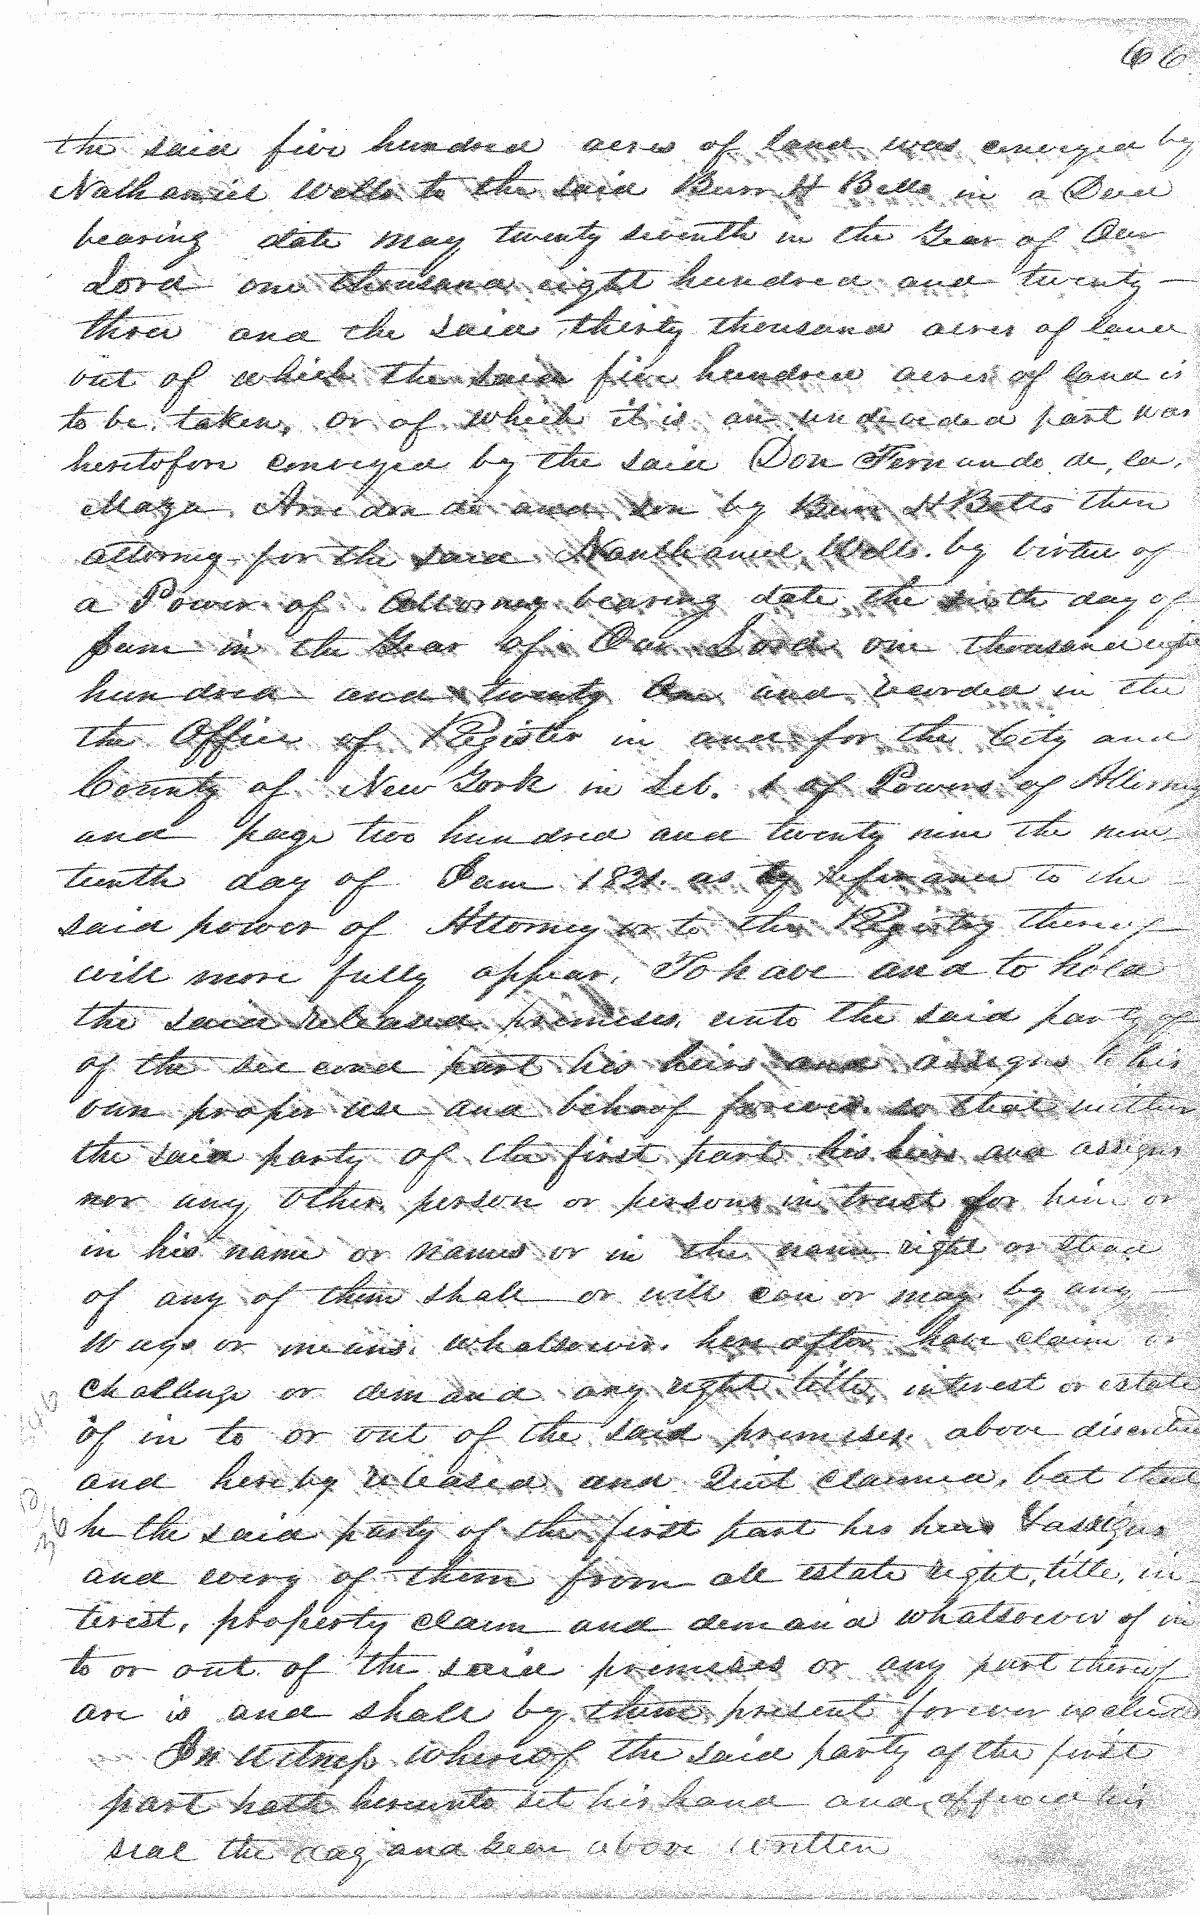 66
the said five hundred acres of land was conveyed by
Nathaniel Wells to the said Burr H Betts in a Deed
bearing date may twenty seventh in the Year of Our
Lord one thousand eight hundred and twenty –
three and the said thirty thousand acres of land
out of which the said five hundred acres of land is
to be taken, or of which it is an undevided part was
heretofore conveyed by the said Don Fernando de, la,
Maza Arredondo and son by Burr H Betts then
attorney for the said Nanthaniel Wells. by virtue of
a Power of Attorney bearing date the sixth day of
June in the Year of Our Lord one thousand eight
hundred and twenty One and recorded in the
the Office of Register in and for the City and
County of New York in Lib. 1 of Powers of Attorney
and page two hundred and twenty nine the nine
teenth day of June 1821. as by referance to the
said power of Attorney or to the Registry thereof
will more fully appear, To have and to hold
the said released premises, unto the said party of
of the second part his heirs and assigns to his
own proper use and behoof forever. so that neither
the said party of the first part his heirs and assigns
nor any other person or persons in trust for him or
in his name or names or in the name right or stead
of any of them shall or will can or may by any –
ways or means. whatsoever. hereafter have claim or
challenge or demand any right title interest or estate
of in to or out of the said premises. above discribed
and hereby released and Quit claimed, but that
he the said party of the first part his heirs & assigns
and every of them from all estate right, title, in
terest, property claim and demand whatsoever of in
to or out of the said premises or any part thereof
are is and shall by these present forever
In Witness whereof the said party of the first
part hath hereunto set his hand and affixed his
seal the day and Year above written